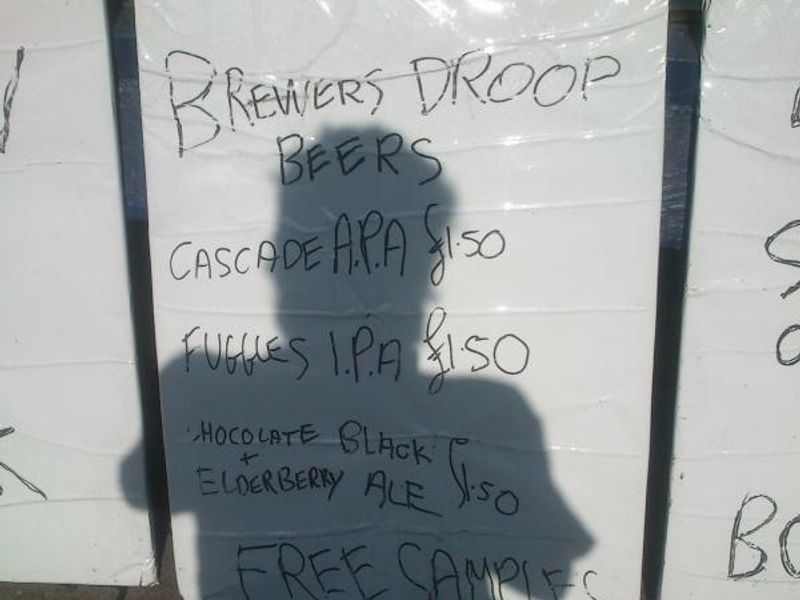 BREWERS DROOP
BEERS
CASCADE A.P.A £1.50
FUGGLES I.P.A £1.50
CHOCOLATE BLACK
+
ELDERBERRY ALE £1.50
FREE SAMPLES
BO